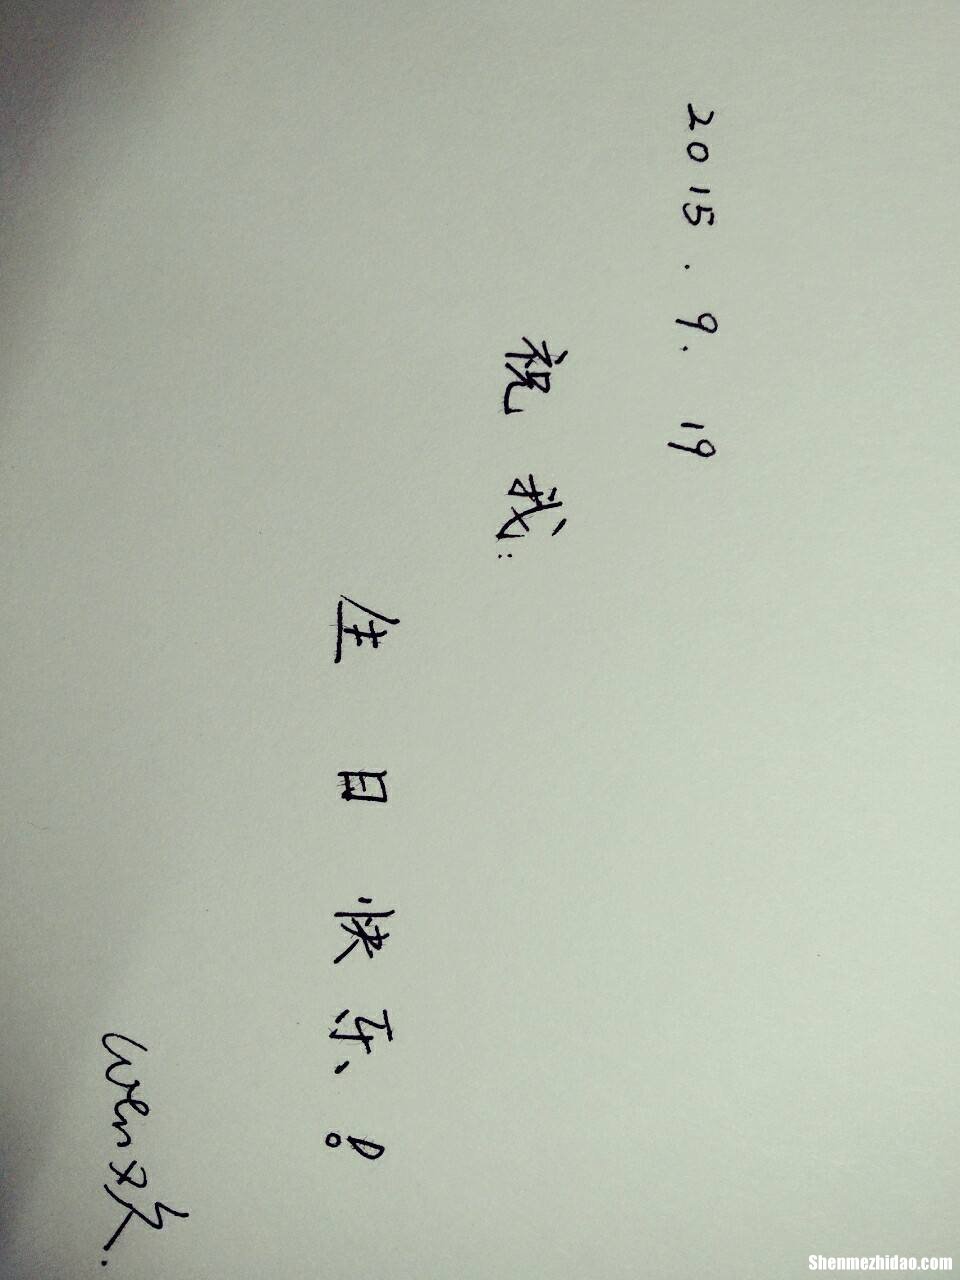 2015.9.19
祝我:
生日快乐!
wen欢.
Shenmezhidao.com